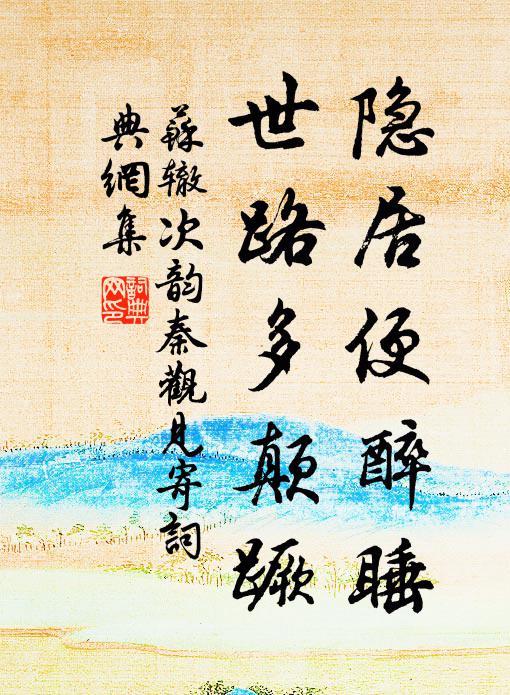 隐居便醉睡
世路多颠蹶
蘇辙次韵秦觀見寄詞
典網集
詞典
网印